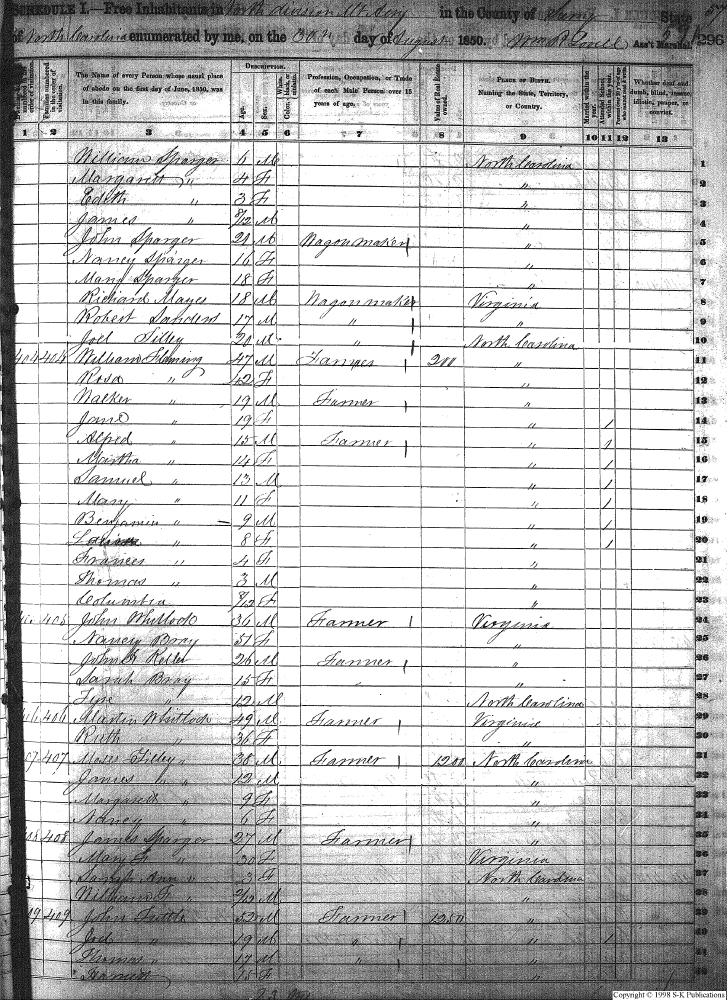 SCHEDULE I.—Free Inhabitants in North division Mt Airy in the County of Surry State
of North Carolina enumerated by me, on the 30th day of August 1850. Ass't Marshal 296
The Name of every Person whose usual place of abode on the first day of June, 1850, was in this family.
Description.
Age.
Sex.
Color,
Profession, Occupation, or Trade of each Male Person over 15 years of age.
Value of Real Estate owned.
Place of Birth. Naming the State, Territory, or Country.
Married within the year.
Whether deaf and dumb, blind, insane, idiotic, pauper, or convict.
1 2 3 4 5 6 7 8 9 10 11 12 13
William Sparger 6 M North Carolina 1
Margarett " 4 F " 2
Edith " 3 F " 3
James " 8/12 M " 4
John Sparger 21 M Wagonmaker " 5
Nancy Sparger 16 F " 6
Mary Sparger 18 F " 7
Richard Mayes 18 M Wagonmaker Virginia 8
Robert Sanders 17 M " " 9
Joel Tilley 20 M " North Carolina 10
404 404 William Fleming 47 M Farmer 200 " 11
Rosa " 42 F " 12
Walker " 19 M Farmer " 13
Jane " 19 F " / 14
Alfred " 15 M Farmer " / 15
Martha " 14 F " / 16
Samuel " 13 M " / 17
Mary " 11 F " / 18
Benjamin " 9 M " / 19
" 8 F " / 20
Frances " 4 F " 21
Thomas " 3 M " 22
Columbia 8/12 F " 23
405 John Whitlock 36 M Farmer Virginia 24
Nancy Bray 51 F " 25
John Keller 26 M Farmer " 26
Sarah Bray 15 F " " 27
" 12 M North Carolina 28
406 Martin Whitlock 49 M Farmer Virginia 29
Ruth " 36 F "
407 Moses Tilley 38 M Farmer 1200 North Carolina
James " 12 M "
Margarett " 9 F "
Nancy " 6 F "
408 James Sparger 27 M Farmer "
Mary F " 20 F Virginia
Ann " 3 F North Carolina
William F. " 2/12 M "
409 John Tuttle 52 M Farmer 1250 "
Joel " 19 M " " /
Thomas " 17 M " "
15 F "
Copyright © 1998 S-K Publications